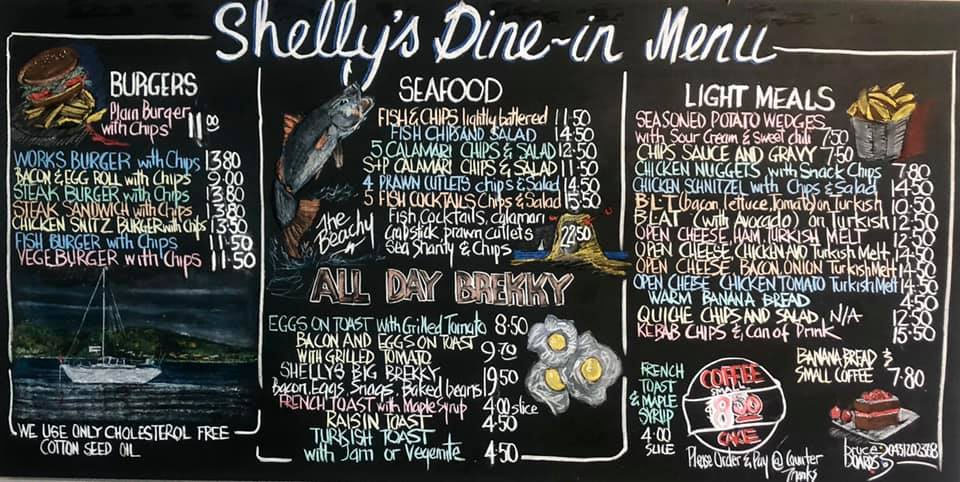 Shelly's Dine-in Menu
BURGERS
Plain Burger
with Chips 11.00
WORKS BURGER with Chips 13.80
BACON & EGG ROLL with Chips 9.00
STEAK BURGER with Chips 13.80
STEAK SANDWICH with Chips 13.80
CHICKEN SNITZ BURGER with Chips 13.50
FISH BURGER with Chips 11.50
VEGEBURGER with Chips 11.50
WE USE ONLY CHOLESTEROL FREE
COTTON SEED OIL
SEAFOOD
FISH & CHIPS lightly battered 11.50
FISH CHIPS AND SALAD 14.50
5 CALAMARI CHIPS & SALAD 12.50
S+P CALAMARI CHIPS & SALAD 11.50
4 PRAWN CUTLETS chips & Salad 14.50
5 FISH COCKTAILS Chips & Salad 15.50
The Beachy
Fish Cocktails, calamari
Crabstick, prawn cutlets
Sea Shanty & Chips
22.50
ALL DAY BREKKY
EGGS ON TOAST with Grilled Tomato 8.50
BACON AND EGGS ON TOAST
WITH GRILLED TOMATO 9.70
SHELLY'S BIG BREKKY
Bacon, Eggs, Snags, Baked beans 19.50
FRENCH TOAST with Maple Syrup 4.00 slice
RAISIN TOAST 4.50
TURKISH TOAST
with Jam or Vegemite 4.50
LIGHT MEALS
SEASONED POTATO WEDGES
with Sour Cream & Sweet chili 7.50
CHIPS SAUCE AND GRAVY 7.50
CHICKEN NUGGETS with Snack Chips 7.80
CHICKEN SCHNITZEL with Chips & Salad 14.50
BLT (bacon, lettuce, Tomato) on Turkish 10.50
BLAT (with Avocado) on Turkish 12.50
OPEN CHEESE, HAM, TURKISH MELT 12.50
OPEN CHEESE, CHICKEN AVO Turkish Melt 14.50
OPEN CHEESE, BACON, ONION Turkish Melt 14.50
OPEN CHEESE CHICKEN TOMATO Turkish Melt 14.50
WARM BANANA BREAD 4.50
QUICHE CHIPS AND SALAD N/A 12.50
KEBAB CHIPS & Can of Drink 15.50
FRENCH
TOAST
& MAPLE
SYRUP
4.00
SLICE
COFFEE
SMALL
8.50
CAKE
BANANA BREAD &
SMALL COFFEE 7.80
Please Order & Pay @ Counter
Thanks
bruce
BOARDS